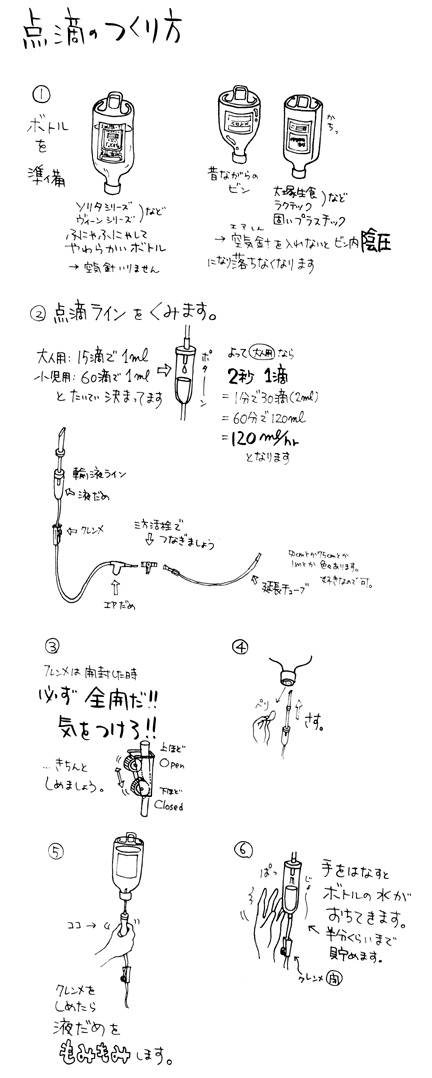 点滴のつくり方
①
ボトル
を
準備
ソリタシリーズ
ヴィーンシリーズ
など
ふにゃふにゃして
やわらかいボトル
→ 空気針いりません
昔ながらの
ビン
かちっ
大塚生食
ラクテック
など
固いプラスチック
→ 空気針を入れないとビン内陰圧
エアしん
になり落ちなくなります
② 点滴ラインをくみます。
大人用: 15滴で1ml
小児用: 60滴で1ml
とだいたい決まってます
ポターン
よって大人用なら
2秒 1滴
= 1分で30滴(2ml)
= 60分で120ml
= 120 ml/hr
となります
輸液ライン
液だめ
クレンメ
エアだめ
三方活栓で
つなぎましょう
50cmとか75cmとか
1mとか色々あります。
お好きなので可。
延長チューブ
③
クレンメは開封した時
必ず全開だ!!
気をつけろ!!
…きちんと
しめましょう。
上ほど
Open
下ほど
Closed
④
ペリ
さす。
⑤
ココ→
クレンメを
しめたら
液だめを
もみもみします。
⑥
ぱっ
じょー
手をはなすと
ボトルの水が
おちてきます。
半分くらいまで
貯めます。
クレンメ 閉